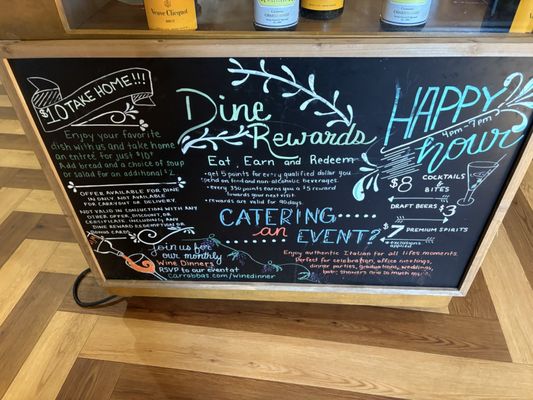 Veuve Clicquot
$10 TAKE HOME!!!
Enjoy your favorite
dish with us and take home
an entrée for just $10*
Add bread and a choice of soup
or salad for an additional $2
OFFER AVAILABLE FOR DINE
IN ONLY. NOT AVAILABLE
FOR CARRYOUT OR DELIVERY.
NOT VALID IN CONJUNCTION WITH ANY
OTHER OFFER, DISCOUNT, OR
CERTIFICATE OR
BONUS CARD
JOIN US FOR
our monthly
Wine Dinners
RSVP to our event at
Carrabbas.com/winedinner
Dine
Rewards
Eat, Earn and Redeem
• get .5 point for every dollar you
spend on food and non-alcoholic beverages.
• every 350 points earns you a $ reward
towards your next visit.
• rewards are valid for 90 days.
CATERING
an EVENT?
Enjoy Authentic Italian for all lifes moments.
Perfect for celebrations, office meetings, rehearsal
dinner parties, graduations, weddings,
baby showers and so much more!
HAPPY
4PM-7PM
hour
$8 COCKTAILS
+ BITES
DRAFT BEERS $3
$7 PREMIUM SPIRITS
*exclusions
apply